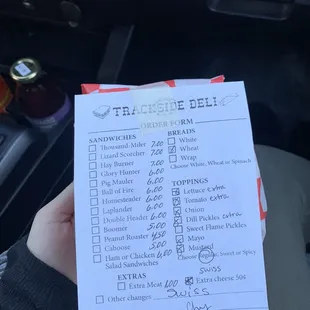 TRACKSIDE DELI
ORDER FORM
SANDWICHES
Thousand-Miler 7.00
Lizard Scorcher 7.00
Hay Burner 7.00
Glory Hunter 6.00
Pig Mauler 6.00
Ball of Fire 6.00
Homesteader 6.00
Laplander 6.00
Double Header 6.00
Boomer 5.00
Peanut Roaster 4.50
Caboose 5.00
Ham or Chicken 6.00
Salad Sandwiches
EXTRAS
Extra Meat 1.00
Other changes
BREADS
White
Wheat
Wrap
Choose White, Wheat or Spinach
TOPPINGS
Lettuce extra
Tomato extra
Onion
Dill Pickles extra
Sweet Flame Pickles
Mayo
Mustard
Choose Regular, Sweet or Spicy
swiss
Extra cheese 50¢
Swiss